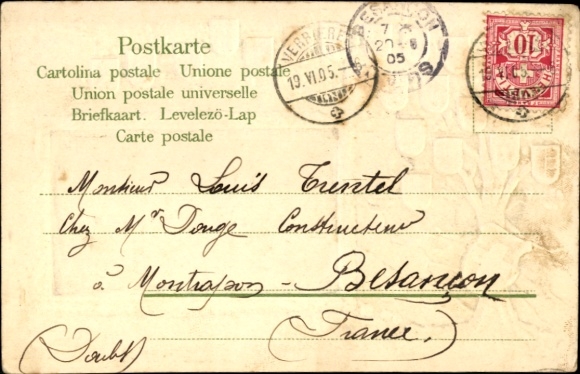 Postkarte
Cartolina postale Unione postale
Union postale universelle
Briefkaart. Levelezö-Lap
Carte postale
19.VI.05.
05
10
19.VI.05.
Monsieur Louis
Chez Mr Constructeur
à Montrapon - Besançon
(Doubs) (France.)